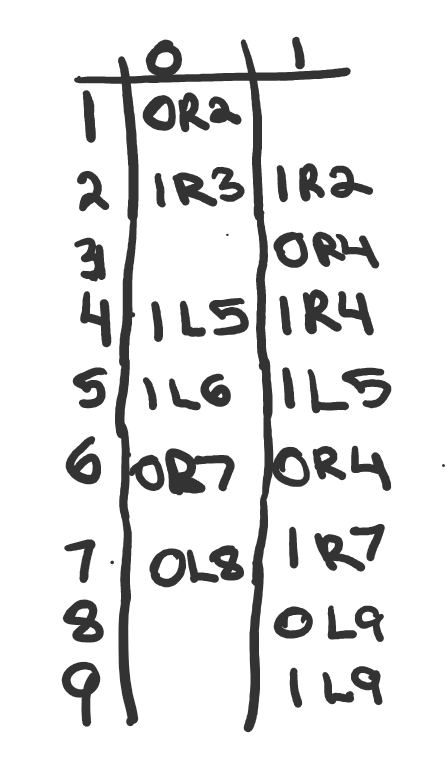 0 1
1 0R2
2 1R3 1R2
3 0R4
4 1L5 1R4
5 1L6 1L5
6 0R7 0R4
7 0L8 1R7
8 0L9
9 1L9